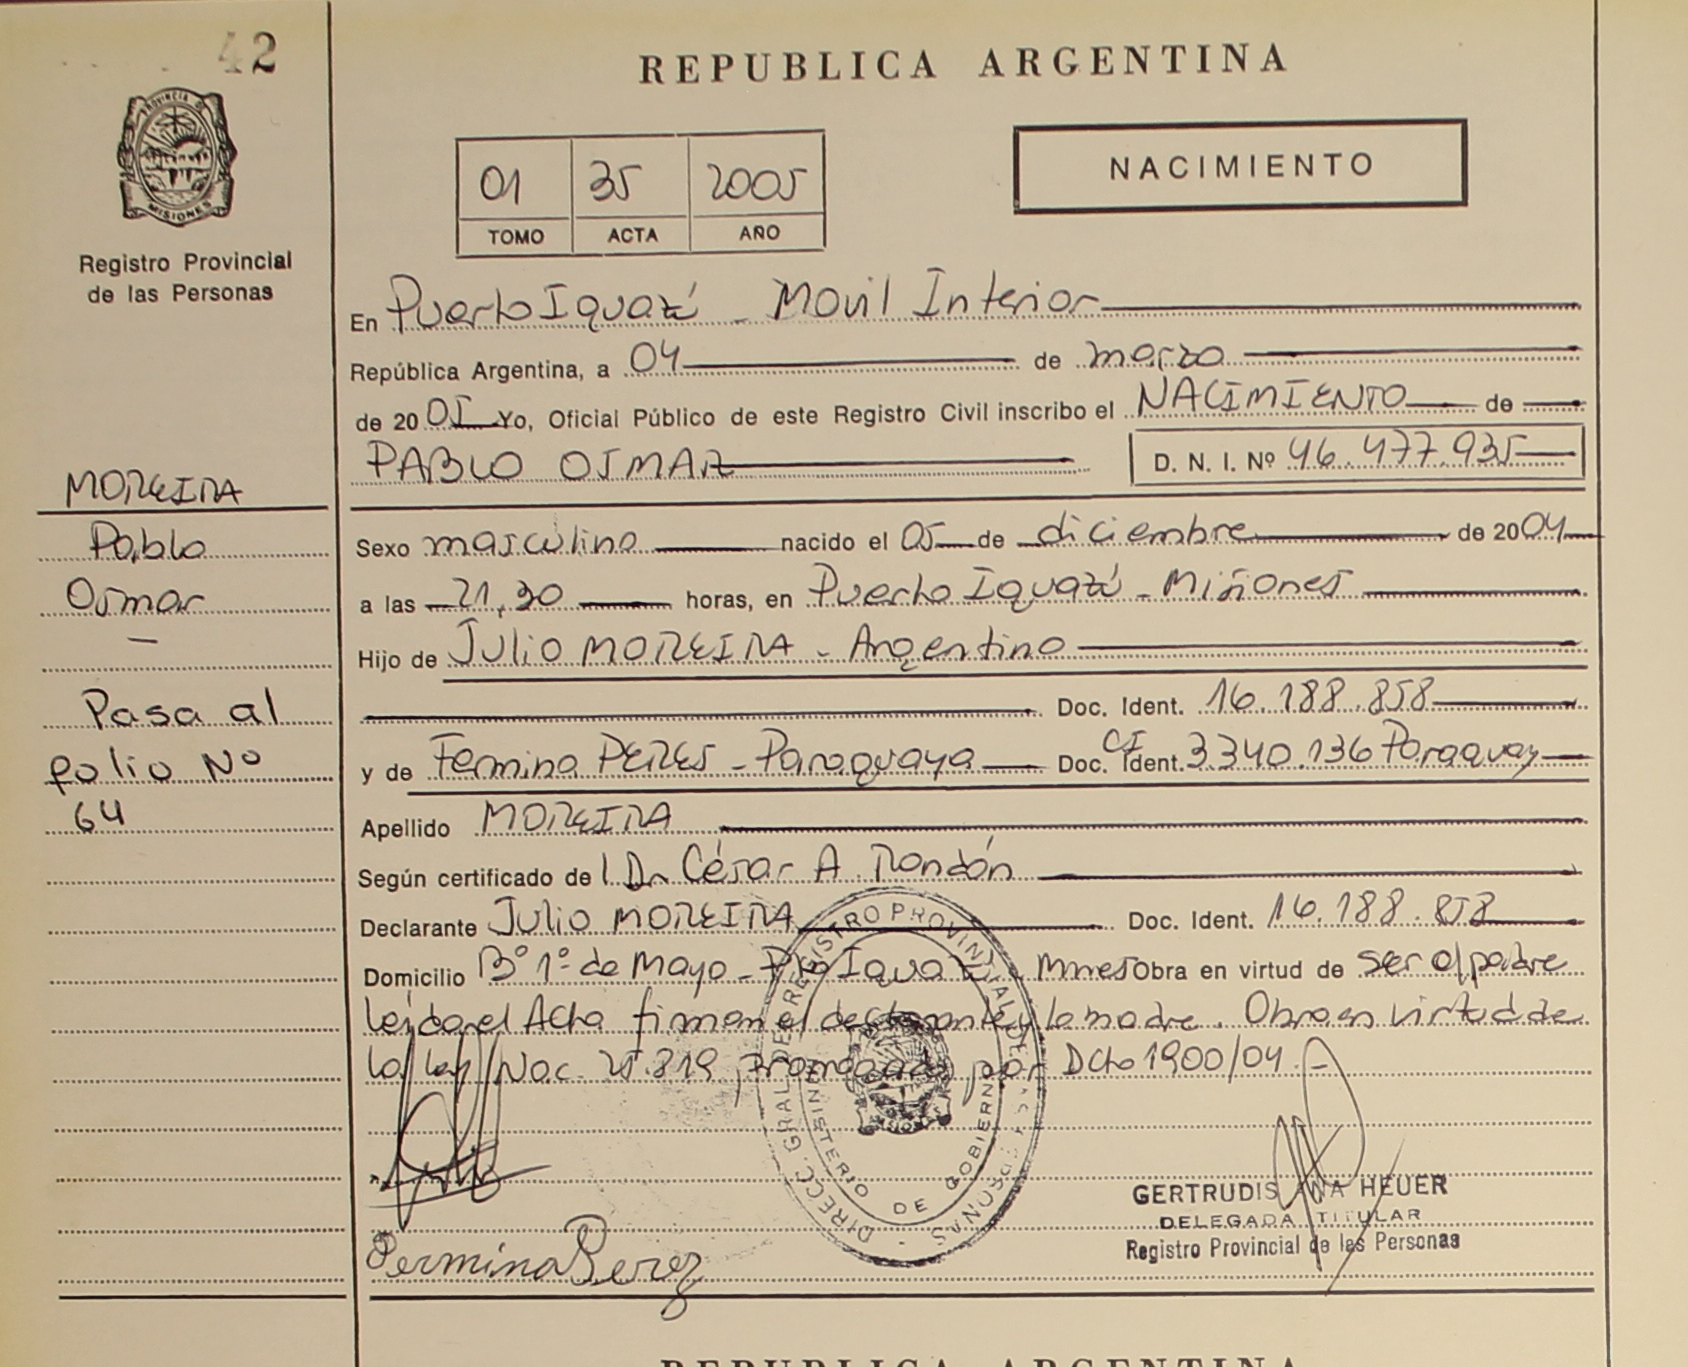 42
REPUBLICA ARGENTINA
PROVINCIA DE
MISIONES
Registro Provincial
de las Personas
01 35 2005
TOMO ACTA AÑO
NACIMIENTO
En Puerto Iguazú - Movil Interior
República Argentina, a 04 de marzo
de 2005 Yo, Oficial Público de este Registro Civil inscribo el NACIMIENTO de
PABLO OSMAR D. N. I. Nº 46.477.935
MOREIRA
Pablo
Osmar
—
Pasa al
folio Nº
64
Sexo masculino nacido el 05 de diciembre de 2004
a las 21,30 horas, en Puerto Iguazú - Misiones
Hijo de Julio MOREIRA - Argentino
Doc. Ident. 16.188.858
y de Fermina PERES - Paraguaya Doc. CI Ident. 3.340.136 Paraguay
Apellido MOREIRA
Según certificado de Dr. César A. Rondón
Declarante Julio MOREIRA Doc. Ident. 16.188.858
Domicilio Bº 1º de Mayo - Pto Iguazú - Mnes Obra en virtud de ser el padre
Leida el Acta firman el declarante y la madre. Obra en virtud de
la Ley Nac. 25.819 promulgada por Dcto 1900/04.-
DIRECC. GRAL. DEL REGISTRO PROVINCIAL DE LAS PERSONAS
MINISTERIO DE GOBIERNO
GERTRUDIS ANA HEUER
DELEGADA TITULAR
Registro Provincial de las Personas
Fermina Perez
REPUBLICA ARGENTINA